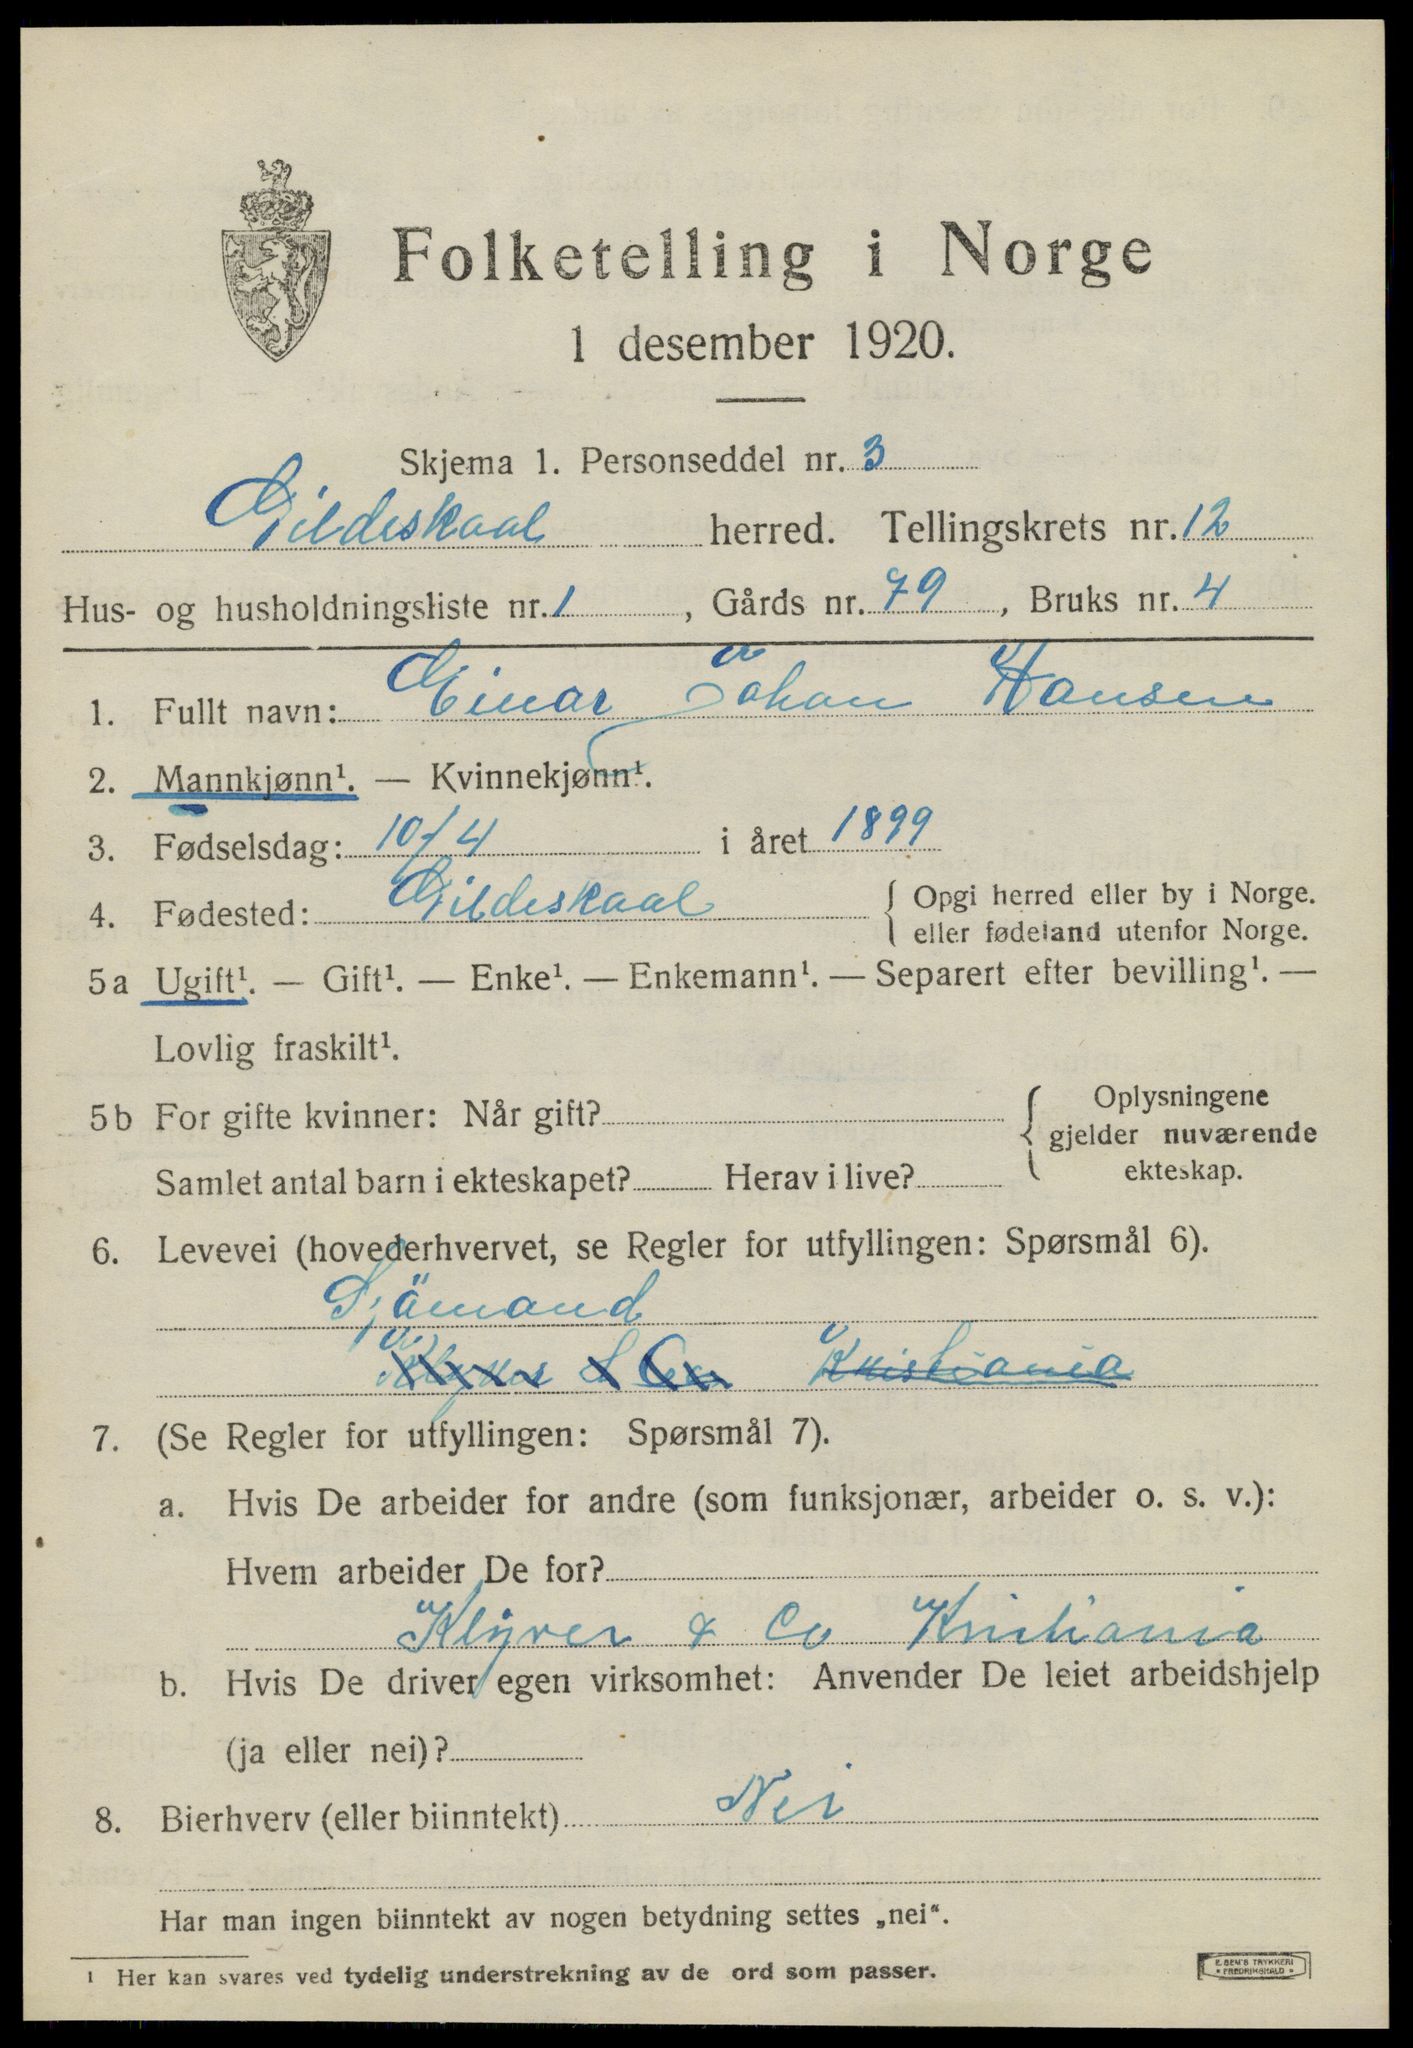 Folketelling i Norge
1 desember 1920.
Skjema 1. Personseddel nr. 3
Gildeskaal herred. Tellingskrets nr. 12
Hus- og husholdningsliste nr. 1, Gårds nr. 79, Bruks nr. 4
1. Fullt navn: Einar Johan Hansen
2. Mannkjønn¹. — Kvinnekjønn¹.
3. Fødselsdag: 10/4 i året 1899
4. Fødested: Gildeskaal { Opgi herred eller by i Norge.
eller fødeland utenfor Norge.
5a Ugift¹. — Gift¹. — Enke¹. — Enkemann¹. — Separert efter bevilling¹. —
Lovlig fraskilt¹.
5b For gifte kvinner: Når gift? { Oplysningene
gjelder nuværende
ekteskap.
Samlet antal barn i ekteskapet? Herav i live?
6. Levevei (hovederhvervet, se Regler for utfyllingen: Spørsmål 6).
Sjömand
& Co Kristiania
7. (Se Regler for utfyllingen: Spørsmål 7).
a. Hvis De arbeider for andre (som funksjonær, arbeider o. s. v.):
Hvem arbeider De for?
Klyver & Co Kristiania
b. Hvis De driver egen virksomhet: Anvender De leiet arbeidshjelp
(ja eller nei)?
8. Bierhverv (eller biinntekt) Nei
Har man ingen biinntekt av nogen betydning settes „nei“.
¹ Her kan svares ved tydelig understrekning av de ord som passer.
E. SEM'S TRYKKERI
FREDRIKSHALD